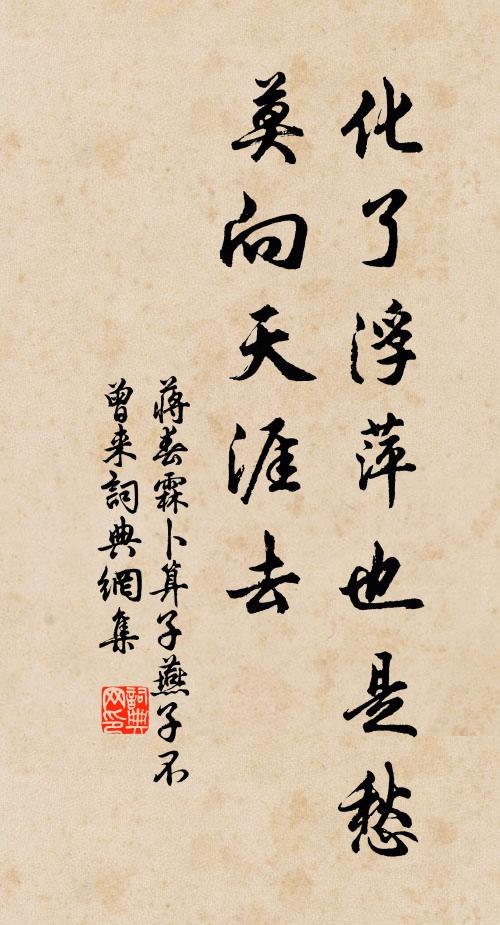 化了浮萍也是愁
莫向天涯去
蔣春霖卜算子燕子不
曾来詞典網集
詞典网印